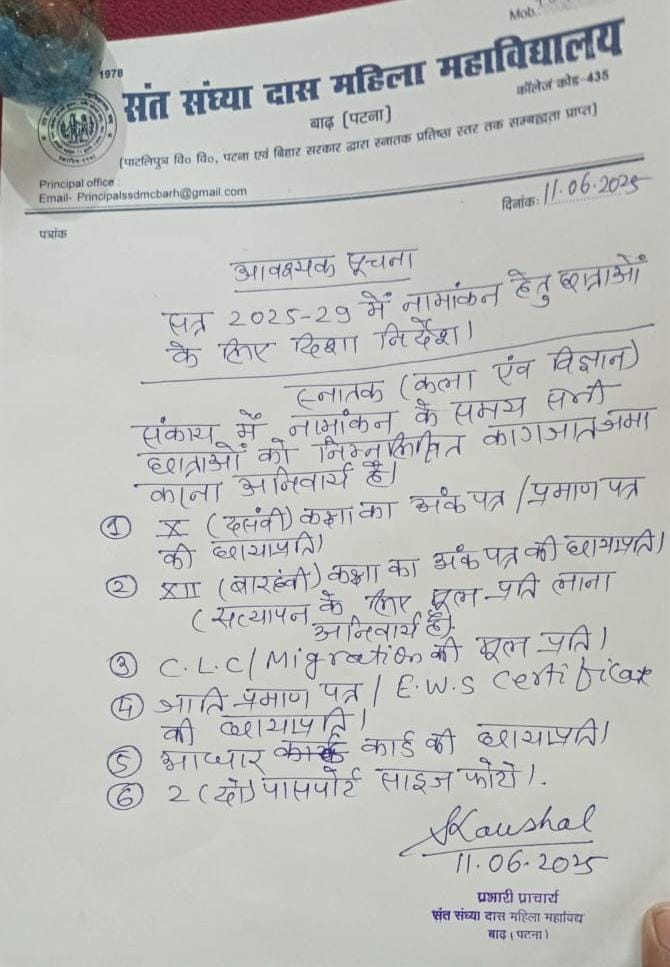 Mob.
1978
संत संघ्या दास महिला महाविद्यालय
कॉलेज कोड-435
बाढ़ (पटना)
(पाटलिपुत्र वि० वि०, पटना एवं बिहार सरकार द्वारा स्नातक प्रतिष्ठा स्तर तक सम्बद्धता प्राप्त)
Principal office :
Email- Principalssdmcbarh@gmail.com
दिनांक: 11.06.2025
पत्रांक
आवश्यक सूचना
सत्र 2025-29 में नामांकन हेतु छात्राओं
के लिए दिशा निर्देश।
स्नातक (कला एंव विज्ञान)
संकाय में नामांकन के समय सभी
छात्राओं को निम्नलिखित कागजात जमा
करना अनिवार्य है।
① X (दसवी) कक्षा का अंक पत्र / प्रमाण पत्र
की छायाप्रति।
② XII (बारहंवी) कक्षा का अंक पत्र की छायाप्रति।
(सत्यापन के लिए मूल-प्रति लाना
अनिवार्य है)
③ C.L.C/ Migration की मूल प्रति।
④ जाति प्रमाण पत्र / E.W.S Certificate
की छायाप्रति।
⑤ आधार कार्ड की छायाप्रति।
⑥ 2 (दो) पासपोर्ट साइज फोटो।.
SKaushal
11.06.2025
प्रभारी प्राचार्य
संत संघ्या दास महिला महाविद्य
बाढ़ (पटना)